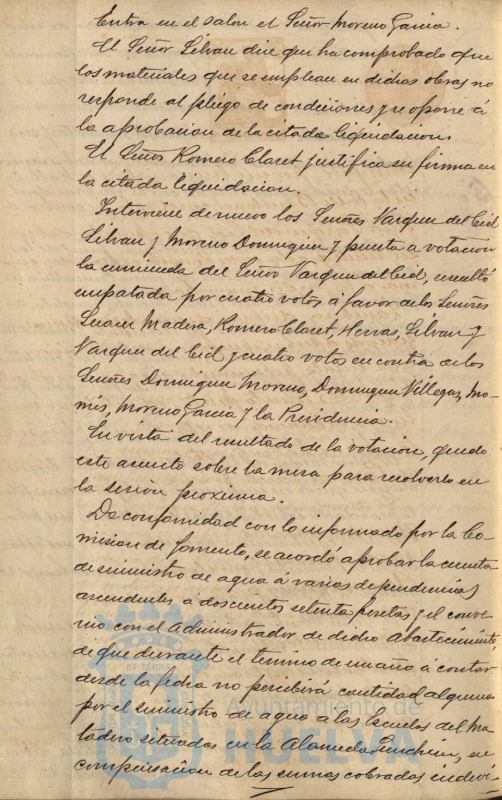 Entra en el salon el Señor Moreno Garcia.
El Señor Silvan dice que ha comprobado que
los materiales que se emplean en dichas obras no
responde al pliego de condiciones y se opone á
la aprobacion de la citada liquidacion.
El Señor Romero Claret justifica su firma en
la citada liquidacion.
Interviene de nuevo los Señores Vazquez del Cid
Silvan y Moreno Dominguez y puesta a votacion
la enmienda del Señor Vazquez del Cid, resultó
empatada por cuatro votos á favor de los Señores
Suarez Madera, Romero Claret, Hervas, Silvan y
Vazquez del Cid y cuatro votos en contra de los
Señores Dominguez Moreno, Dominguez Villegas, Mo-
nis, Moreno Garcia y la Presidencia.
En vista del resultado de la votacion, quedo
este asunto sobre la mesa para resolverlo en
la sesion proxima.
De conformidad con lo informado por la Co-
mision de fomento, se acordó aprobar la cuenta
de suministro de agua á varias dependencias
ascendentes á doscientos setenta pesetas y el conve-
nio con el Administrador de dicho Abastecimiento,
de que durante el termino de un año á contar
desde la fecha no percibirá cantidad alguna
por el suministro de agua a las Escuelas del Ma-
tadero situadas en la Alameda Sundheim, en
compensacion de las sumas cobradas indevi-
ET TERRÆ
Ayuntamiento de
HUELVA